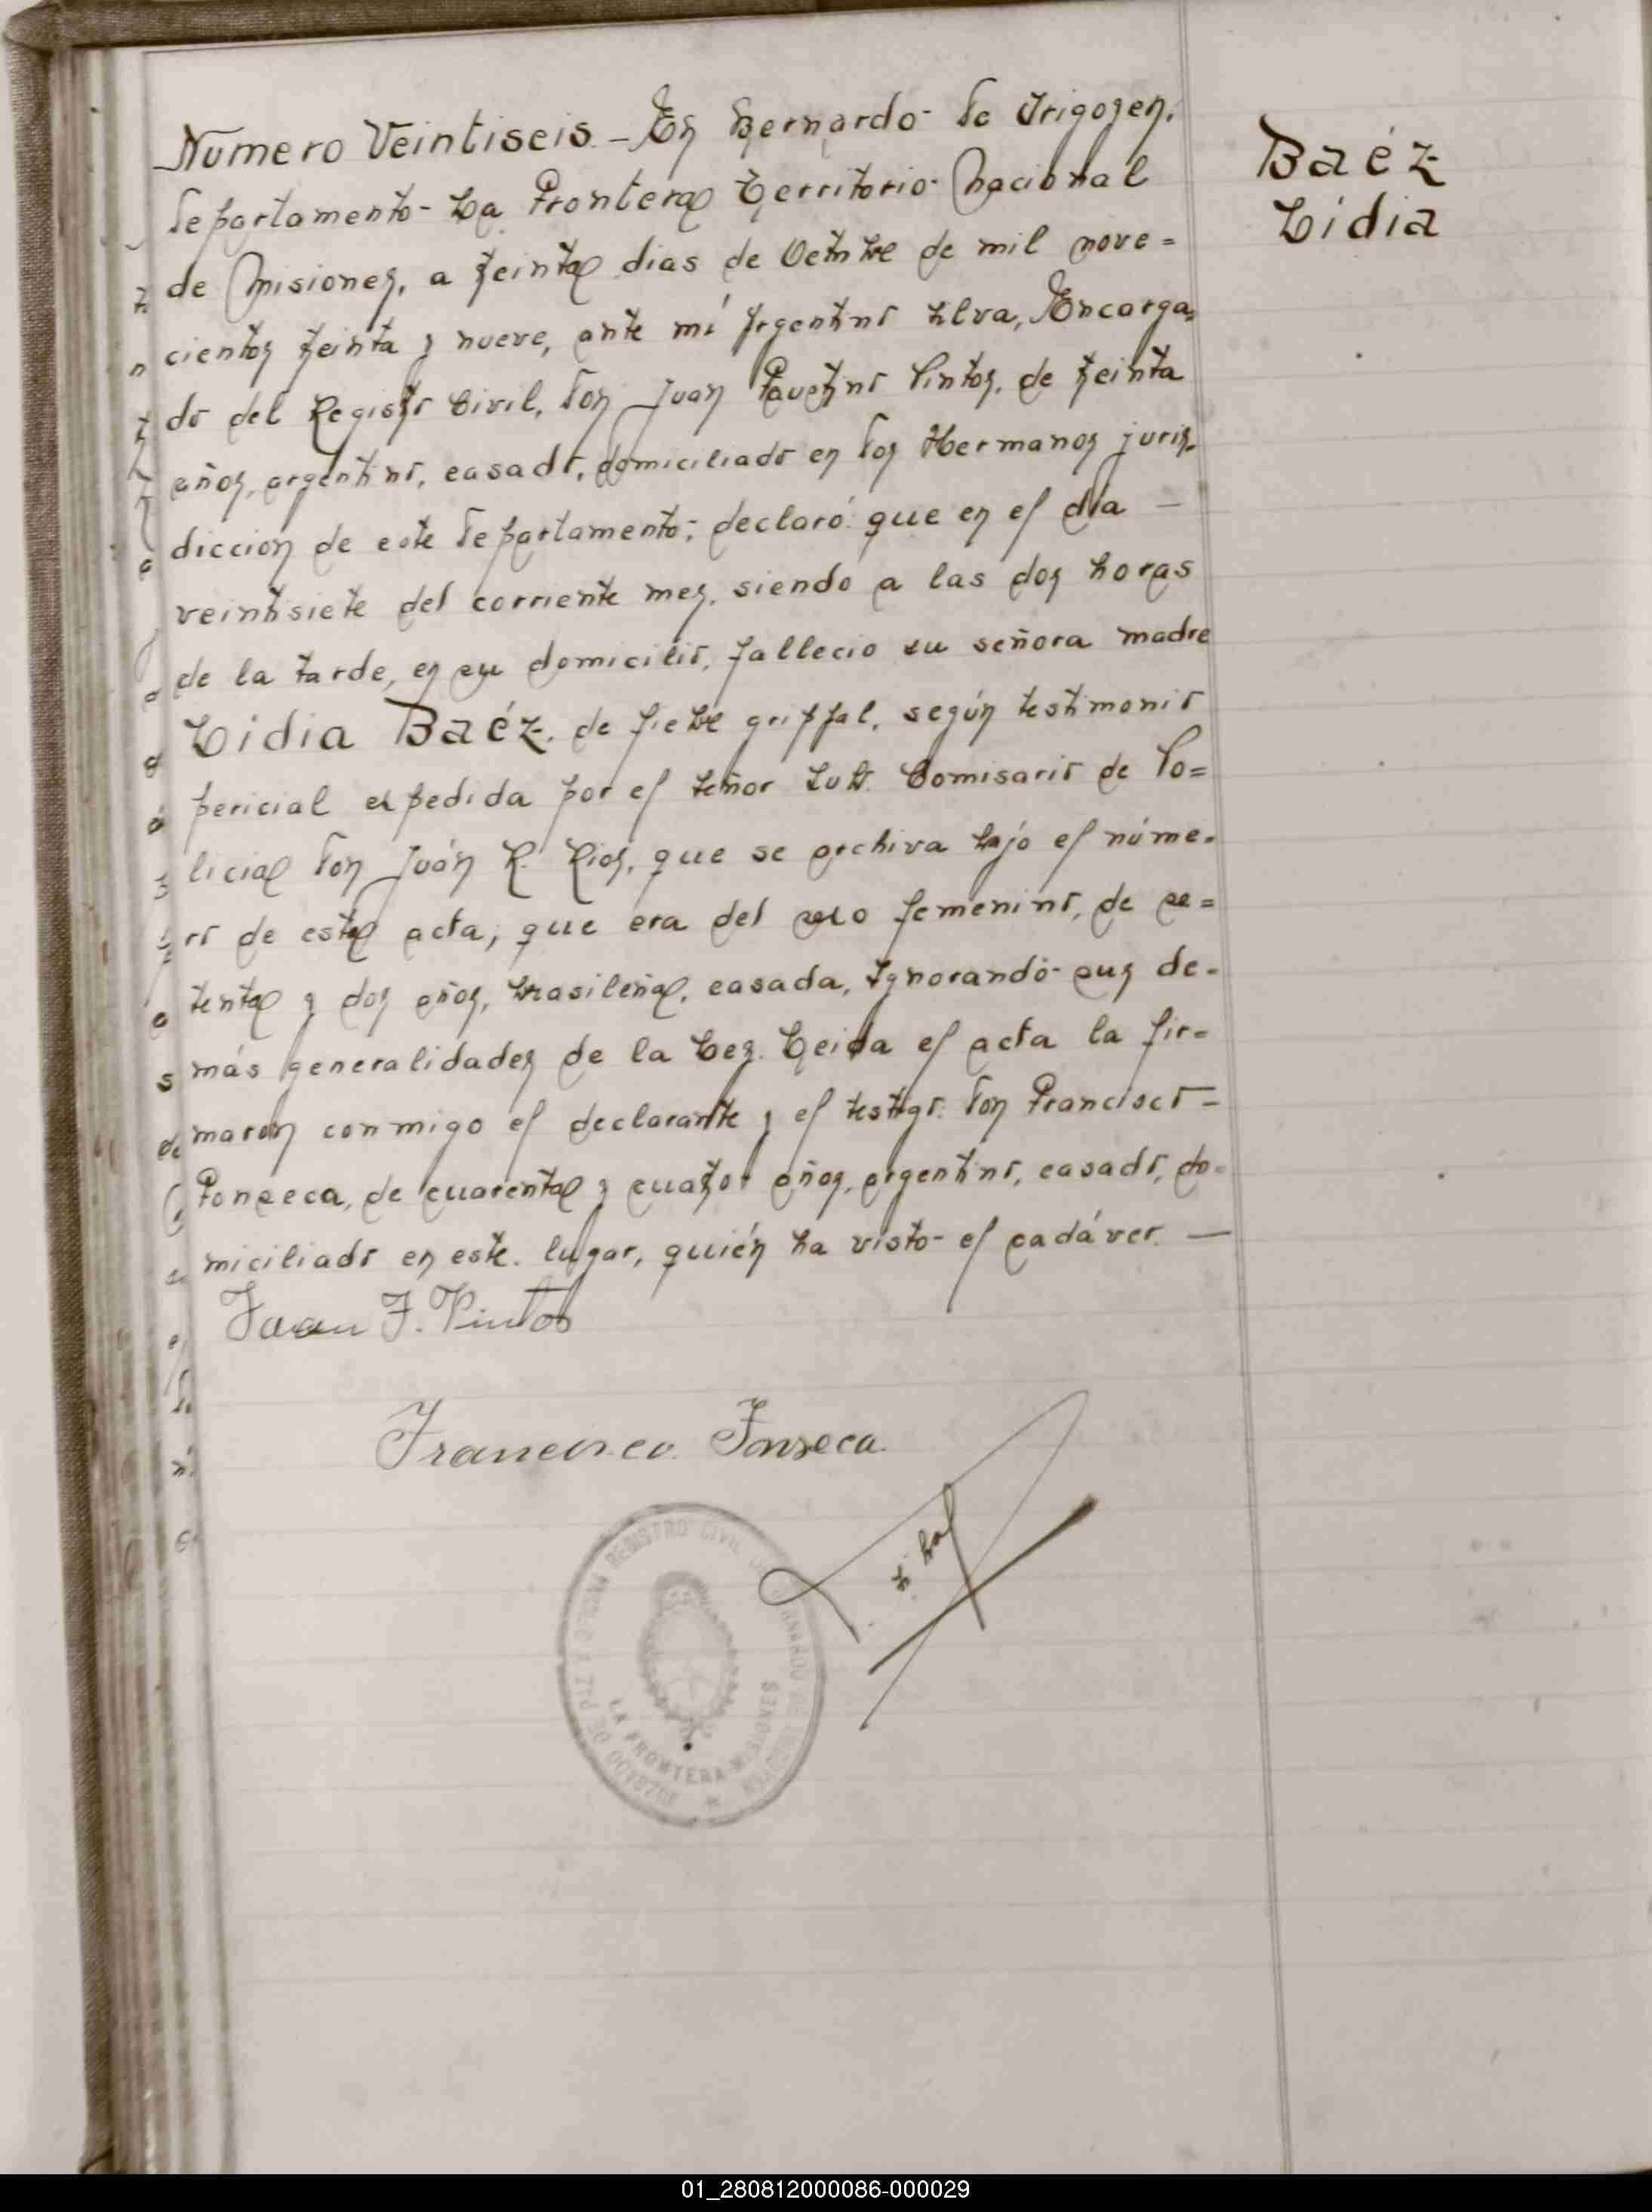 Numero Veintiseis. – En Bernardo de Irigoyen.
Departamento - La Frontera Territorio Nacional
de Misiones, a treinta dias de Octubre de mil nove=
cientos treinta y nueve, ante mí Argentino Silva, Encarga=
do del Registro Civil, Don Juan Faustino Pintos, de treinta
años, argentino, casado, domiciliado en Dos Hermanos juris-
diccion de este Departamento; declaró: que en el día —
veintisiete del corriente mes, siendo a las dos horas
de la tarde, en su domicilio, fallecio su señora madre
Lidia Baéz, de fiebre grippal, según testimonio
pericial expedida por el señor Sub. Comisario de Po=
licia Don Juán R. Rios, que se archiva bajo el núme-
ro de esta acta; que era del sexo femenino, de se=
tenta y dos años, brasileña, casada, Ignorando sus de-
más generalidades de la Ley. Leida el acta la fir=
maron conmigo el declarante y el testigo: Don Francisco –
Fonseca, de cuarenta y cuatro años, argentino, casado, do=
miciliado en este. lugar, quién ha visto el cadáver. —
Juan F. Pintos
Francisco Fonseca
JUZGADO DE PAZ Y OFICINA REGISTRO CIVIL DE BERNARDO DE IRIGOYEN
LA FRONTERA-MISIONES
Baéz
Lidia
01_280812000086-000029